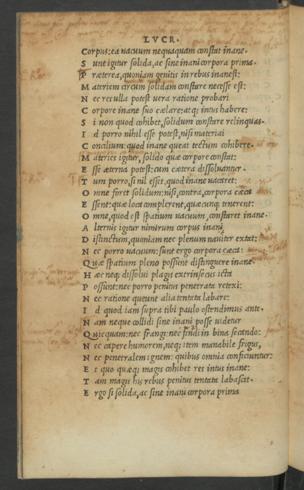 LVCR.
Corpus: ea vacuum nequaquam constat inane.
S unt igitur solida, ac sine inani corpora prima.
P ræterea, quoniam genitis in rebus inanest:
M atriem circum solidam constare necesse est:
N ec res ulla potest uera ratione probari
C orpore inane suo cælare, atq; intus habere:
S i non quod cohibet, solidum constare relinquas.
I d porro nihil esse potest, nisi materiai
C oncilium: quod inane queat tectum cohibere.
M atries igitur, solido quæ corpore constat:
E sse æterna potest: cum cætera dissoluantur.
T um porro, si nil esset, quod inane uacaret:
O mne foret solidum: nisi, contra, corpora cæca
E ssent: quæ loca complerent, quæcunq; tenerent:
O mne, quod est spatium uacuum, constaret inane.
A lternis igitur nimirum corpus inani
D istinctum, quoniam nec plenum nauiter extat:
N ec porro uacuum: sunt ergo corpora cæca:
Q uæ spatium pleno possint distinguere inane.
H æc neq; dissolui plagis extrinsecus icta
P ossunt: nec porro penitus penetrata retexi:
N ec ratione queunt alia tentata labare:
I d quod iam supra tibi paulo ostendimus ante.
N am neque collidi sine inani posse uidetur
Q uicquam: nec frangi: nec findi in bina secando:
N ec capere humorem, neq; item manabile frigus,
N ec penetralem ignem: quibus omnia conficiuntur:
E t quo quæq; magis cohibet res intus inane:
T am magis his rebus penitus tentata labascit.
E rgo si solida, ac sine inani corpora prima